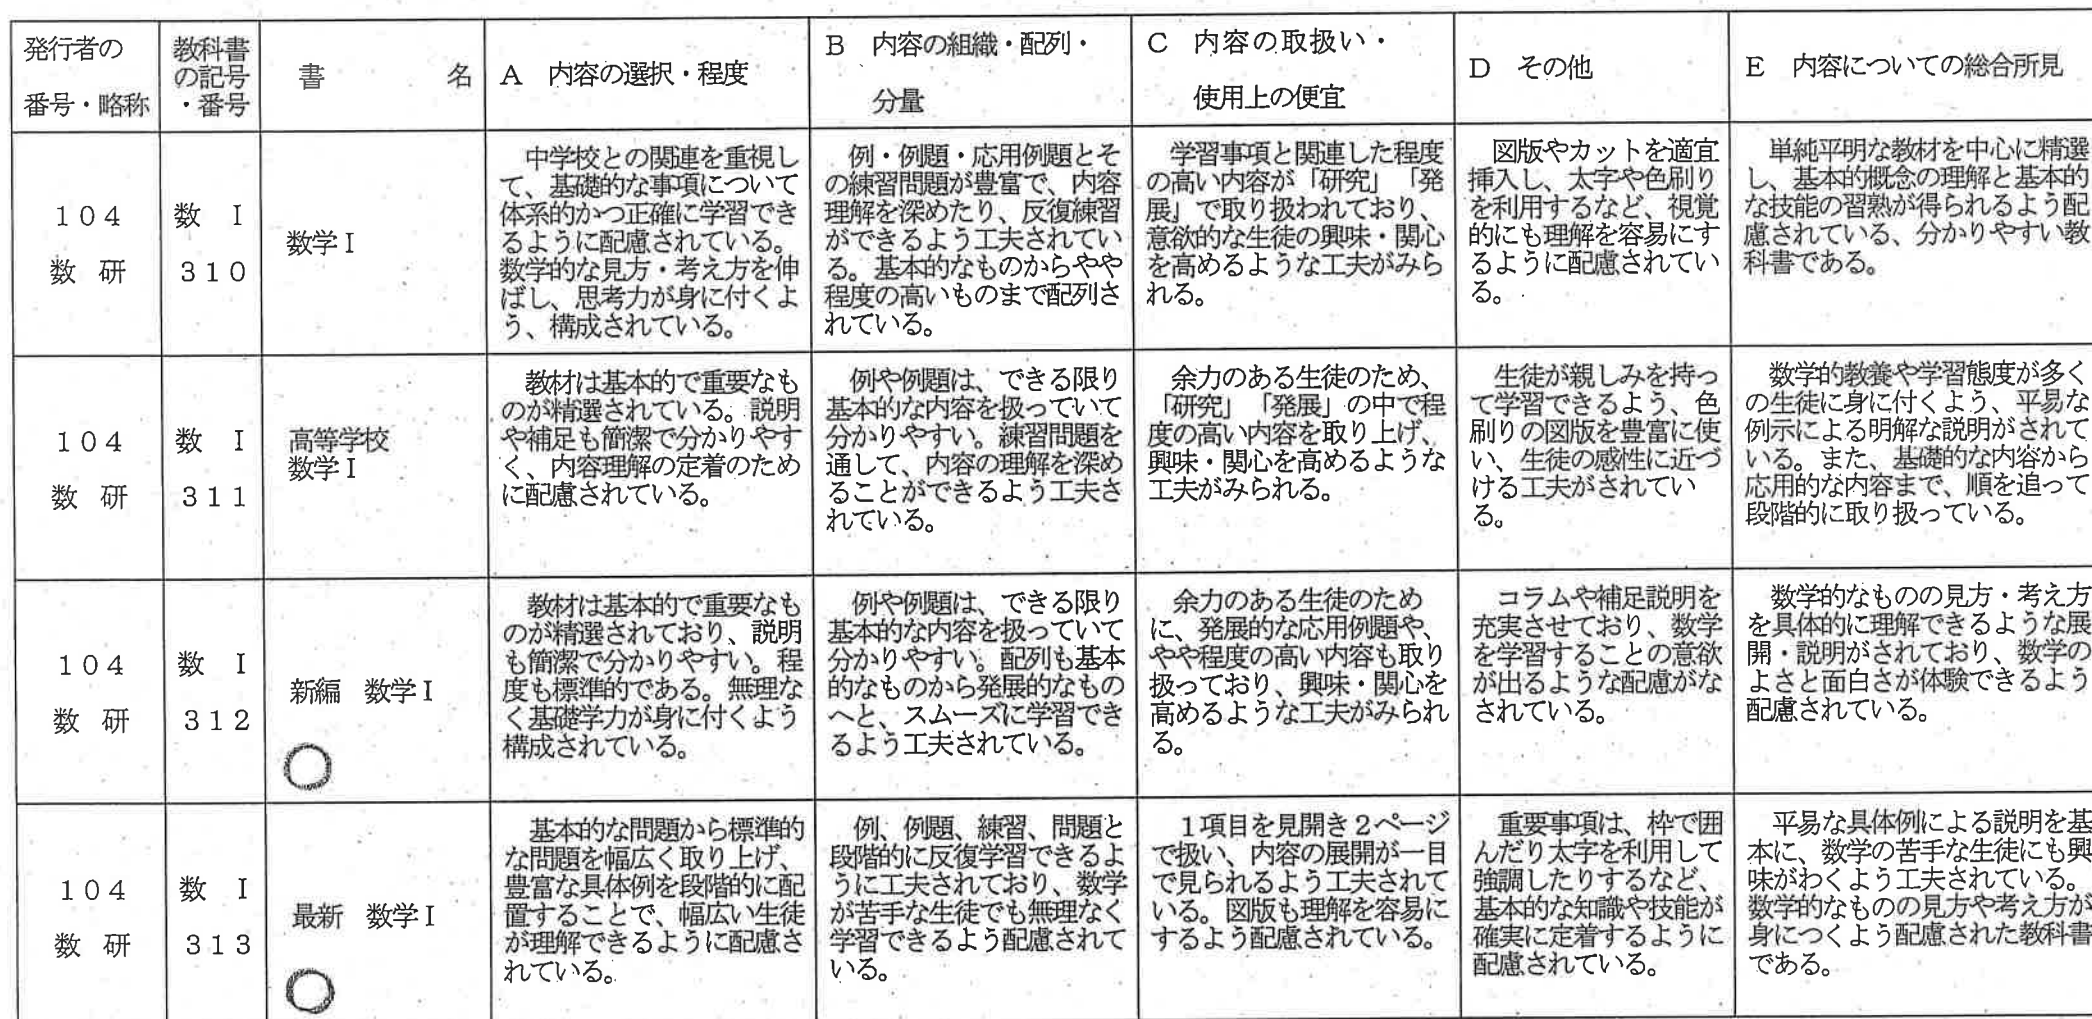 発行者の
番号・略称
教科書
の記号
・番号
書　　　　名
A　内容の選択・程度
B　内容の組織・配列・
分量
C　内容の取扱い・
使用上の便宜
D　その他
E　内容についての総合所見
104
数 研
数 I
310
数学I
中学校との関連を重視し
て、基礎的な事項について
体系的かつ正確に学習でき
るように配慮されている。
数学的な見方・考え方を伸
ばし、思考力が身に付くよ
う、構成されている。
例・例題・応用例題とそ
の練習問題が豊富で、内容
理解を深めたり、反復練習
ができるよう工夫されてい
る。基本的なものからやや
程度の高いものまで配列さ
れている。
学習事項と関連した程度
の高い内容が「研究」「発
展」で取り扱われており、
意欲的な生徒の興味・関心
を高めるような工夫がみら
れる。
図版やカットを適宜
挿入し、太字や色刷り
を利用するなど、視覚
的にも理解を容易にす
るように配慮されてい
る。
単純平明な教材を中心に精選
し、基本的概念の理解と基本的
な技能の習熟が得られるよう配
慮されている、分かりやすい教
科書である。
104
数 研
数 I
311
高等学校
数学I
教材は基本的で重要なも
のが精選されている。説明
や補足も簡潔で分かりやす
く、内容理解の定着のため
に配慮されている。
例や例題は、できる限り
基本的な内容を扱っていて
分かりやすい。練習問題を
通して、内容の理解を深め
ることができるよう工夫さ
れている。
余力のある生徒のため、
「研究」「発展」の中で程
度の高い内容を取り上げ、
興味・関心を高めるような
工夫がみられる。
生徒が親しみを持っ
て学習できるよう、色
刷りの図版を豊富に使
い、生徒の感性に近づ
ける工夫がされてい
る。
数学的教養や学習態度が多く
の生徒に身に付くよう、平易な
例示による明解な説明がされて
いる。また、基礎的な内容から
応用的な内容まで、順を追って
段階的に取り扱っている。
104
数 研
数 I
312
新編　数学I
教材は基本的で重要なも
のが精選されており、説明
も簡潔で分かりやすい。程
度も標準的である。無理な
く基礎学力が身に付くよう
構成されている。
例や例題は、できる限り
基本的な内容を扱っていて
分かりやすい。配列も基本
的なものから発展的なもの
へと、スムーズに学習でき
るよう工夫されている。
余力のある生徒のため
に、発展的な応用例題や、
やや程度の高い内容も取り
扱っており、興味・関心を
高めるような工夫がみられ
る。
コラムや補足説明を
充実させており、数学
を学習することの意欲
が出るような配慮がな
されている。
数学的なものの見方・考え方
を具体的に理解できるような展
開・説明がされており、数学の
よさと面白さが体験できるよう
配慮されている。
104
数 研
数 I
313
最新　数学I
基本的な問題から標準的
な問題を幅広く取り上げ、
豊富な具体例を段階的に配
置することで、幅広い生徒
が理解できるように配慮さ
れている。
例、例題、練習、問題と
段階的に反復学習できるよ
うに工夫されており、数学
が苦手な生徒でも無理なく
学習できるよう配慮されて
いる。
1項目を見開き2ページ
で扱い、内容の展開が一目
で見られるよう工夫されて
いる。図版も理解を容易に
するよう配慮されている。
重要事項は、枠で囲
んだり太字を利用して
強調したりするなど、
基本的な知識や技能が
確実に定着するように
配慮されている。
平易な具体例による説明を基
本に、数学の苦手な生徒にも興
味がわくよう工夫されている。
数学的なものの見方や考え方が
身につくよう配慮された教科書
である。